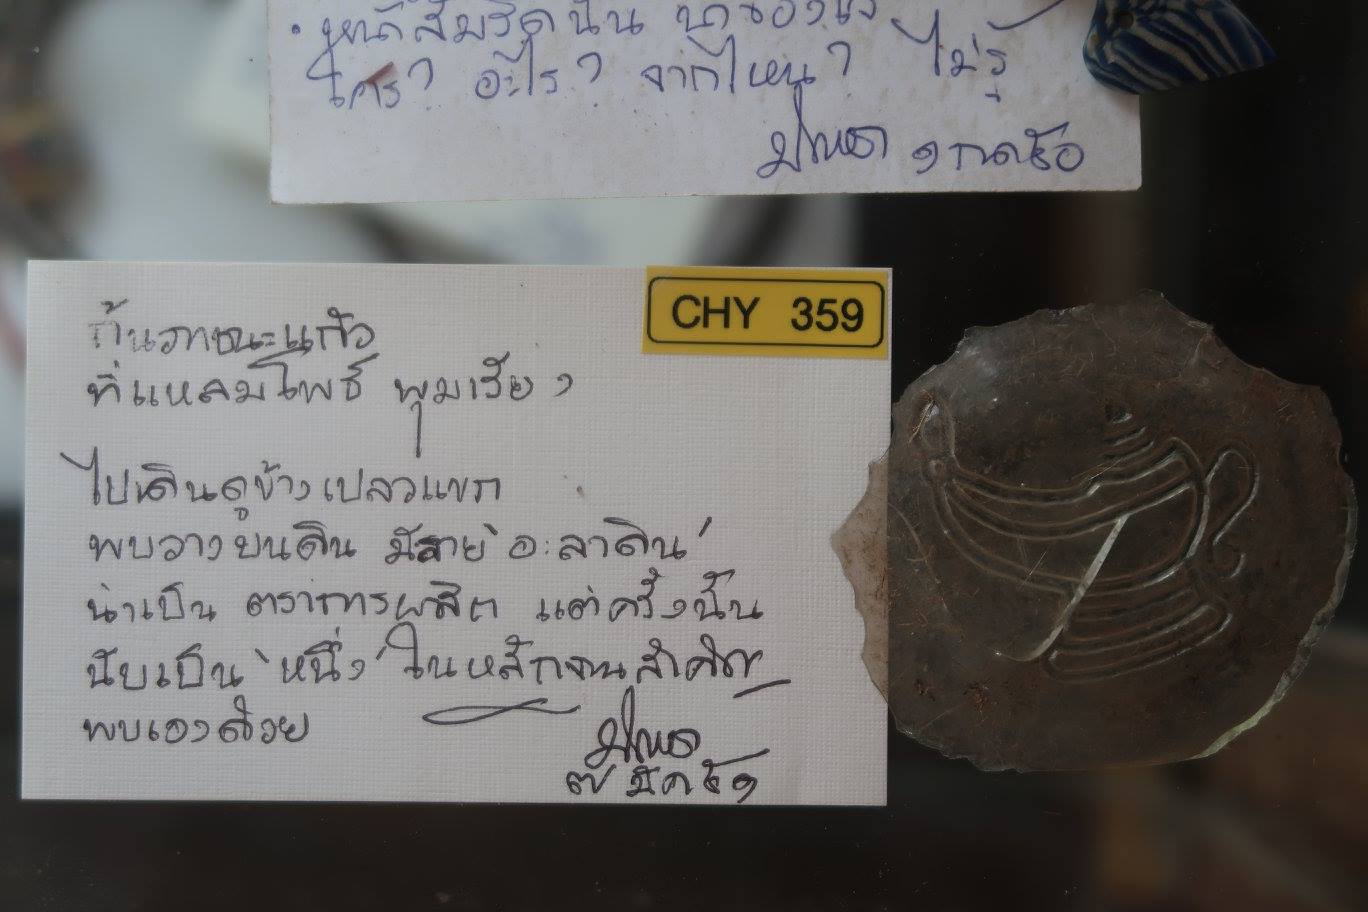 • หน้าสัมริดนั้น
ใคร? อะไร? จากไหน? ไม่รู้
CHY 359
ก้นภาชนะแก้ว
ที่แหลมโพธิ์ พุมเรียง
ไปเดินดูข้างเปลวแขก
พบวางบนดิน มีลาย 'อะลาดิน'
น่าเป็น ตราการผลิต แต่ครั้งนั้น
นับเป็น 'หนึ่ง' ในหลักฐานสำคัญ
พบเองด้วย